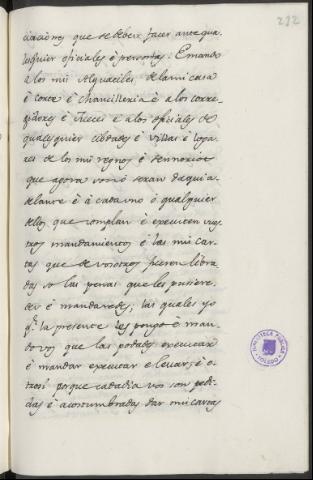 232
ciaciones que se deben facer ante qua
lesquier oficiales è personas. E mando
a los mis Alguaciles de la mi casa
è corte è Chancilleria è a los corre
gidores è Jueces e a los oficiales de
qualesquier cibdades è villas è loga
res de los mis regnos è sennorios
que agora son ò seran daqui a
delante è à cada uno ò qualquier
dellos que cumplan è executen vues
tros mandamientos è las mis car
tas que de vosotros fueren libra
das so las penas que les pusiere
des è mandaredes; las quales yo
por la presente les pongo è man
do vos que las podades executar
è mandar executar e levar; è o
trosi porque cada dia vos son pedi
das è acostumbradas dar mis cartas
BIBLIOTECA PUBLICA
TOLEDO